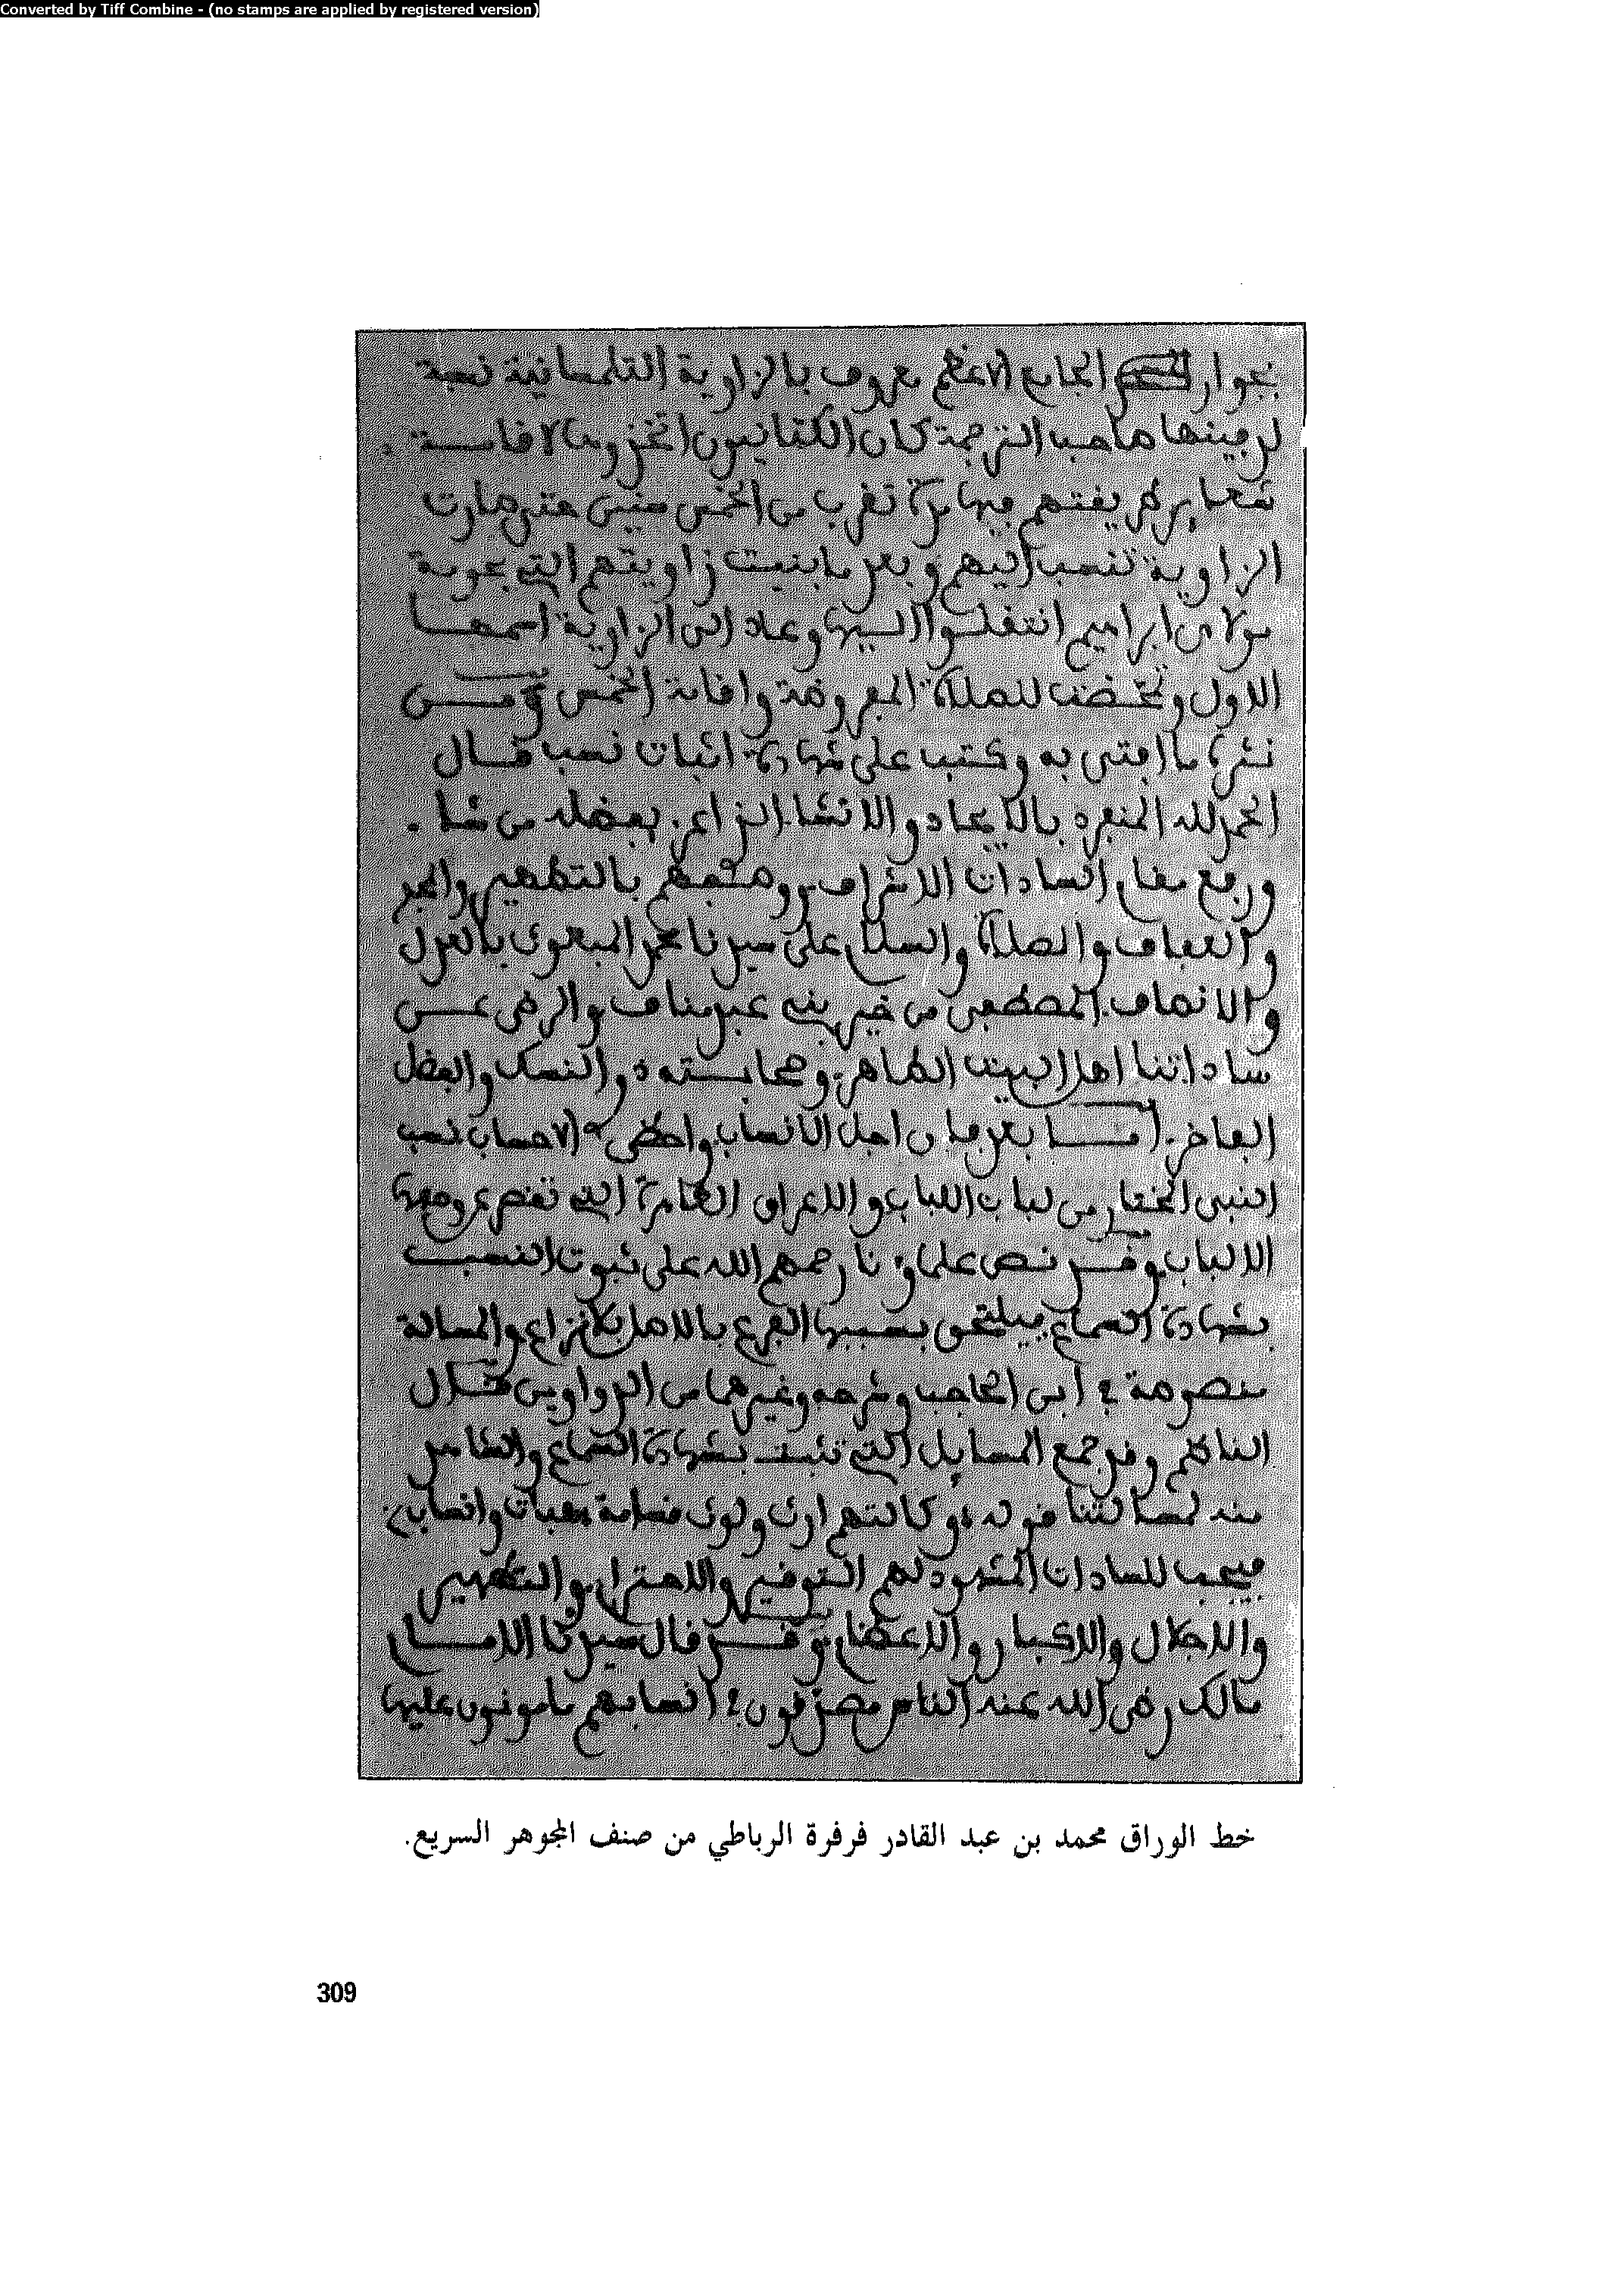 Converted by Tiff Combine - (no stamps are applied by registered version)
بجوار الجامع الأعظم معروف بالزاوية التلمسانية نسبة
صاحب الترجمة كان الكتانيون اتخزوها لاقامة
شعايرهم فيها مدة تقرب من الخمس سنين حتى صارت
الزاوية تنسب إليهم وبعد ما بنيت زاويتهم التي بحومة
مولاى ابراهيم انتقلوا اليها وعاد الى الزاوية اسمها
الاول وتمحضت للصلاة المعروفة واقامة الخمس ومن
نثره ما افتى به وكتب على شهادة اثبات نسب قال
الحمد لله المنفرد بالايجاد والانشا الذي بفضله من شا
ورفع مقام السادات الاشراف بالتطهير والمجد
والعفاف والصلاة والسلام على سيدنا محمد المبعوث بالعدل
والانصاف المصطفى من خير بني عبد مناف والرضى عن
ساداتنا اهل البيت الطاهر وصحابته ذوي النسك والفضل
أما بعد فإن اجل الانساب الاحساب نسب
النبي المختار من لباب اللباب والاعراق الطاهرة التي
الالباب وقد نص علماونا رحمهم الله على ثبوت النسب
بشهادة السماع فيلتحق بسببها الفرع بالاصل بلا نزاع والمسالة
منصوصة في ابن الحاجب وشرحه وغيرهما من الدواوين قال
الناظم وقد جمع المسايل التي تثبت بشهادة السماع والشاهد
منه لمسالتنا قوله
فيجب للسادات المشهود لهم التوقير والاحترام والتطهير
والاجلال والاكبار والاعظام وقد قال سيدنا الامام
مالك رضي الله عنه الناس مصدقون في انسابهم مامونون عليها
خط الوراق محمد بن عبد القادر فرفرة الرباطي من صنف المجوهر السريع.
309